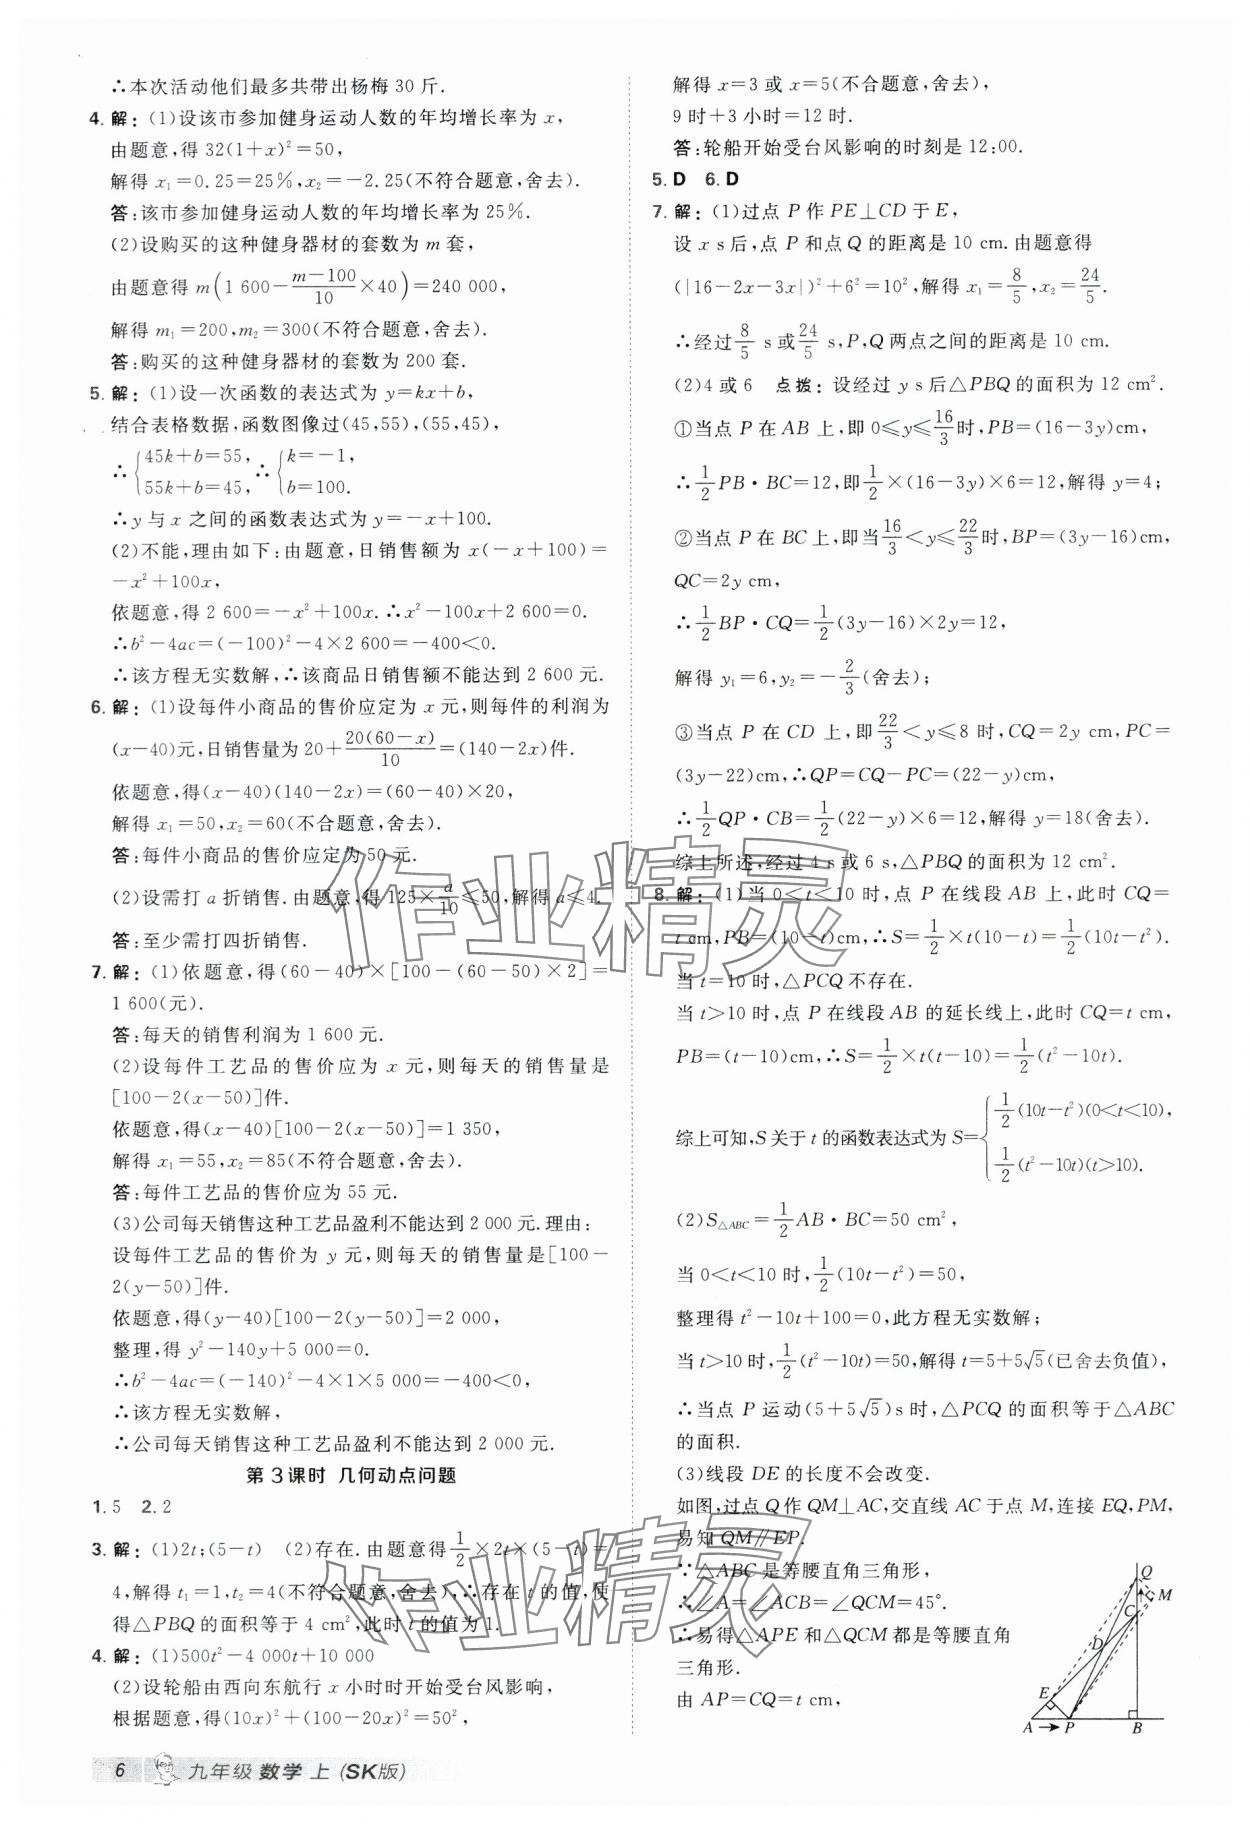 ∴本次活动他们最多共带出杨梅 30 斤.
4. 解：(1)设该市参加健身运动人数的年均增长率为 x,
由题意,得 32(1+x)²=50,
解得 x₁=0.25=25%,x₂=-2.25(不符合题意,舍去).
答:该市参加健身运动人数的年均增长率为 25%.
(2)设购买的这种健身器材的套数为 m 套,
由题意得 m(1 600-(m-100)/10×40)=240 000,
解得 m₁=200,m₂=300(不符合题意,舍去).
答:购买的这种健身器材的套数为 200 套.
5. 解：(1)设一次函数的表达式为 y=kx+b,
结合表格数据,函数图像过(45,55),(55,45),
∴{45k+b=55, 55k+b=45, ∴{k=-1, b=100.
∴y 与 x 之间的函数表达式为 y=-x+100.
(2)不能,理由如下:由题意,日销售额为 x(-x+100)=
-x²+100x,
依题意,得 2 600=-x²+100x.∴x²-100x+2 600=0.
∴b²-4ac=(-100)²-4×2 600=-400<0.
∴该方程无实数解,∴该商品日销售额不能达到 2 600 元.
6. 解：(1)设每件小商品的售价应定为 x 元,则每件的利润为
(x-40)元,日销售量为 20+20(60-x)/10=(140-2x)件.
依题意,得(x-40)(140-2x)=(60-40)×20,
解得 x₁=50,x₂=60(不合题意,舍去).
答:每件小商品的售价应定为 50 元.
(2)设需打 a 折销售.由题意,得 125×a/10≤50,解得 a≤4.
答:至少需打四折销售.
7. 解：(1)依题意,得(60-40)×[100-(60-50)×2]=
1 600(元).
答:每天的销售利润为 1 600 元.
(2)设每件工艺品的售价应为 x 元,则每天的销售量是
[100-2(x-50)]件.
依题意,得(x-40)[100-2(x-50)]=1 350,
解得 x₁=55,x₂=85(不符合题意,舍去).
答:每件工艺品的售价应为 55 元.
(3)公司每天销售这种工艺品盈利不能达到 2 000 元.理由:
设每件工艺品的售价为 y 元,则每天的销售量是[100-
2(y-50)]件.
依题意,得(y-40)[100-2(y-50)]=2 000,
整理,得 y²-140y+5 000=0.
∴b²-4ac=(-140)²-4×1×5 000=-400<0,
∴该方程无实数解,
∴公司每天销售这种工艺品盈利不能达到 2 000 元.
第 3 课时 几何动点问题
1. 5 2. 2
3. 解：(1)2t;(5-t) (2)存在.由题意得1/2×2t×(5-t)=
4,解得 t₁=1,t₂=4(不符合题意,舍去),∴存在 t 的值,使
得△PBQ 的面积等于 4 cm²,此时 t 的值为 1.
4. 解：(1)500t²-4 000t+10 000
(2)设轮船由西向东航行 x 小时时开始受台风影响,
根据题意,得(10x)²+(100-20x)²=50²,
解得 x=3 或 x=5(不合题意,舍去),
9 时+3 小时=12 时.
答:轮船开始受台风影响的时刻是 12:00.
5. D 6. D
7. 解：(1)过点 P 作 PE⊥CD 于 E,
设 x s后,点 P 和点 Q 的距离是 10 cm.由题意得
(|16-2x-3x|)²+6²=10²,解得 x₁=8/5,x₂=24/5.
∴经过8/5 s或24/5 s,P,Q 两点之间的距离是 10 cm.
(2)4 或 6 点拨：设经过 y s后△PBQ 的面积为 12 cm².
①当点 P 在 AB 上,即 0≤y≤16/3时,PB=(16-3y)cm,
∴1/2PB·BC=12,即1/2×(16-3y)×6=12,解得 y=4;
②当点 P 在 BC 上,即当16/3<y≤22/3时,BP=(3y-16)cm,
QC=2y cm,
∴1/2BP·CQ=1/2(3y-16)×2y=12,
解得 y₁=6,y₂=-2/3(舍去);
③当点 P 在 CD 上,即22/3<y≤8 时,CQ=2y cm,PC=
(3y-22)cm,∴QP=CQ-PC=(22-y)cm,
∴1/2QP·CB=1/2(22-y)×6=12,解得 y=18(舍去).
综上所述,经过 4 s或 6 s,△PBQ 的面积为 12 cm².
8. 解：(1)当 0<t<10 时,点 P 在线段 AB 上,此时 CQ=
t cm,PB=(10-t)cm,∴S=1/2×t(10-t)=1/2(10t-t²).
当 t=10 时,△PCQ 不存在.
当 t>10 时,点 P 在线段 AB 的延长线上,此时 CQ=t cm,
PB=(t-10)cm,∴S=1/2×t(t-10)=1/2(t²-10t).
综上可知,S 关于 t 的函数表达式为 S={1/2(10t-t²)(0<t<10), 1/2(t²-10t)(t>10).
(2)S△ABC=1/2AB·BC=50 cm²,
当 0<t<10 时,1/2(10t-t²)=50,
整理得 t²-10t+100=0,此方程无实数解;
当 t>10 时,1/2(t²-10t)=50,解得 t=5+5√5(已舍去负值),
∴当点 P 运动(5+5√5)s 时,△PCQ 的面积等于△ABC
的面积.
(3)线段 DE 的长度不会改变.
如图,过点 Q 作 QM⊥AC,交直线 AC 于点 M,连接 EQ,PM,
易知 QM∥EP.
∵△ABC 是等腰直角三角形,
∴∠A=∠ACB=∠QCM=45°.
∴易得△APE 和△QCM 都是等腰直角
三角形.
由 AP=CQ=t cm,
Q
M
F
C
D
E
A P B
6 九年级 数学 上 (SK版)
作业精灵
作业精灵